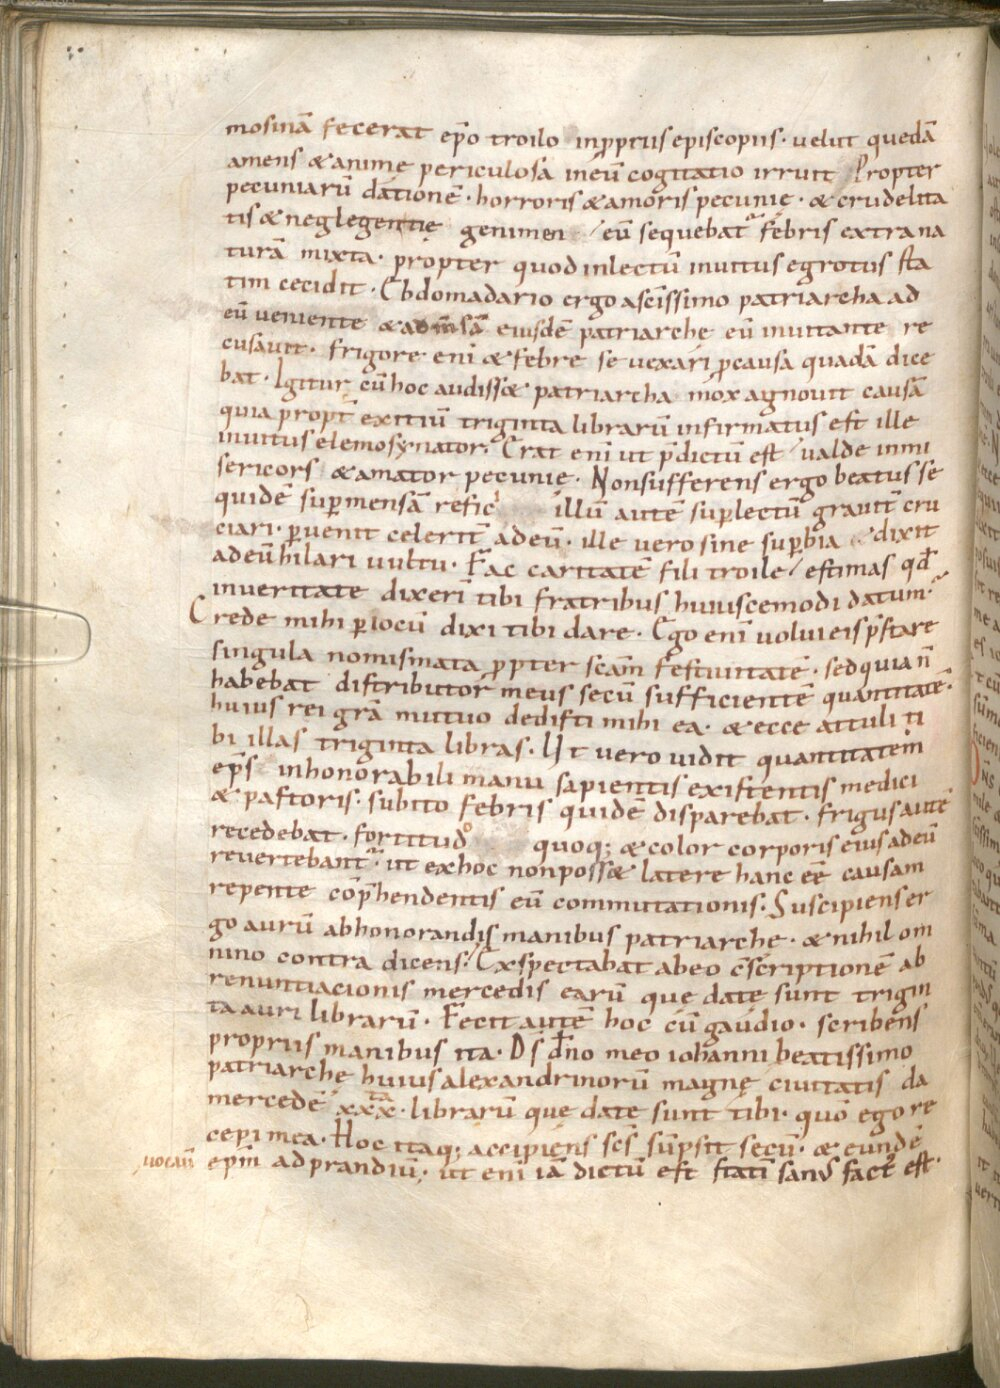 mosinā fecerat ep̄o troilo inp̄priis episcopiis· velut quedā
amens & anime periculosa ineū cogitatio irruit Propter
pecuniarū dationē· horroris & amoris pecunię· & crudelita
tis & neglegentię genimen eū sequebat᷑ febris extra na
turā mixta· propter quod inlectū inuitus egrotus sta
tim cecidit· Ebdomadario ergo asc̄issimo patriarcha ad
eū veniente & admsā eiusdē patriarche eū inuitante re
cusauit· frigore eni & febre se vexari ꝑcausa quadā dice
bat· Igitur cū hoc audiss& patriarcha mox agnouit causā
quia propt̄ exitiū triginta librarū infirmatus est ille
inuitus elemosynator· Erat eni ut p̄dictū est valde inmi
sericors & amator pecunie· Non sufferens ergo beatus se
quidē suꝑmensā refici illū autē suꝑlectū grauit̄ cru
ciari· ꝑuenit celerit̄ adeū· ille vero sine suꝑbia dixit
adeū hilari uultu· Fac caritatē fili troile estimas qd̄
inueritate dixerī tibi fratribus huiuscemodi datum·
Crede mihi ꝑ locū dixi tibi dare· Ego enī uolui eis p̄stare
singula nomismata ꝓpter sc̄am festiuitatē· sed quia n̄
habebat distributor meus secū sufficientē quantitatē·
huius rei gr̄a mutuo dedisti mihi ea· & ecce attuli ti
bi illas triginta libras· Ut vero vidit quantitatem
ep̄s inhonorabili manu sapientis existentis medici
& pastoris· subito febris quidē disparebat· frigus autē
recedebat· fortitudo quoq; & color corporis eius adeū
reuertebant᷑· ut exhoc non poss& latere hanc eē causam
repente cōp̄hendentis eū commutationis· Suscipiens er
go aurū abhonorandis manibus patriarche· & nihil om
nino contra dicens· Exspectabat abeo c̄scriptionē ab
renuntiacionis mercedis earū que date sunt trigin
ta auri librarū· Fecit autē hoc cū gaudio· scribens
propriis manibus ita· Ds d̄no meo iohanni beatissimo
patriarche huius alexandrinorū magnę ciuitatis da
mercedē xxxta· librarū que date sunt tibi· quō ego re
cepi mea· Hoc itaq; accipiens sc̄s sūpsit secū· & eundē
uocauī ep̄m ad prandiū· ut eni iā dictū est statī sanus fact᷒ est·